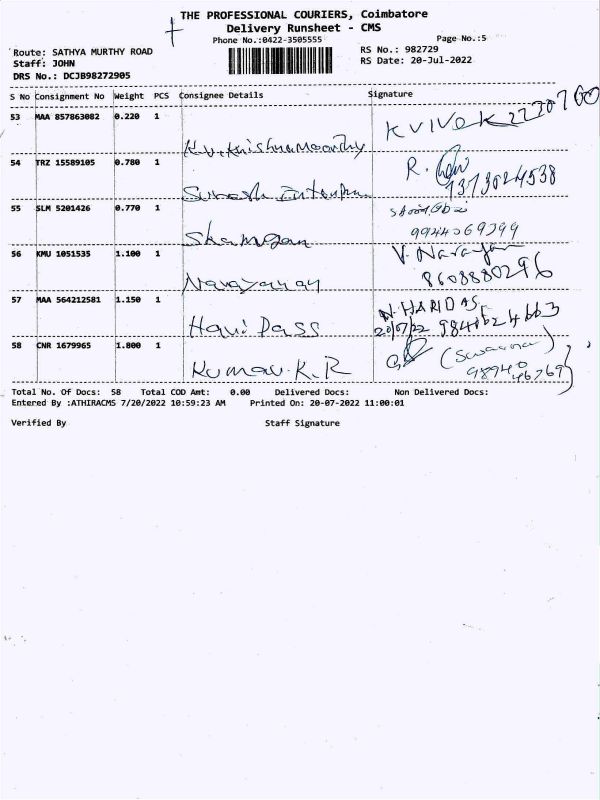 THE PROFESSIONAL COURIERS, Coimbatore
Delivery Runsheet - CMS
Phone No.:0422-3505555
Page No.:5
Route: SATHYA MURTHY ROAD
RS No.: 982729
Staff: JOHN
RS Date: 20-Jul-2022
DRS No.: DCJB98272905
S No Consignment No Weight PCS Consignee Details Signature
53 MAA 857863082 0.220 1 K.V.Krishnamoorthy KVIVEK
54 TRZ 15589105 0.780 1 Suresh R.
55 SLM 5201426 0.770 1
9944069399
56 KMU 1051535 1.100 1 Narayanan V. Narayan
8608880296
57 MAA 564212581 1.150 1 Hari Dass N. HARIDAS
20/07/22 9840624663
58 CNR 1679965 1.800 1 Kumar.K.R
98940
46769
Total No. Of Docs: 58 Total COD Amt: 0.00 Delivered Docs: Non Delivered Docs:
Entered By :ATHIRACMS 7/20/2022 10:59:23 AM Printed On: 20-07-2022 11:00:01
Verified By Staff Signature